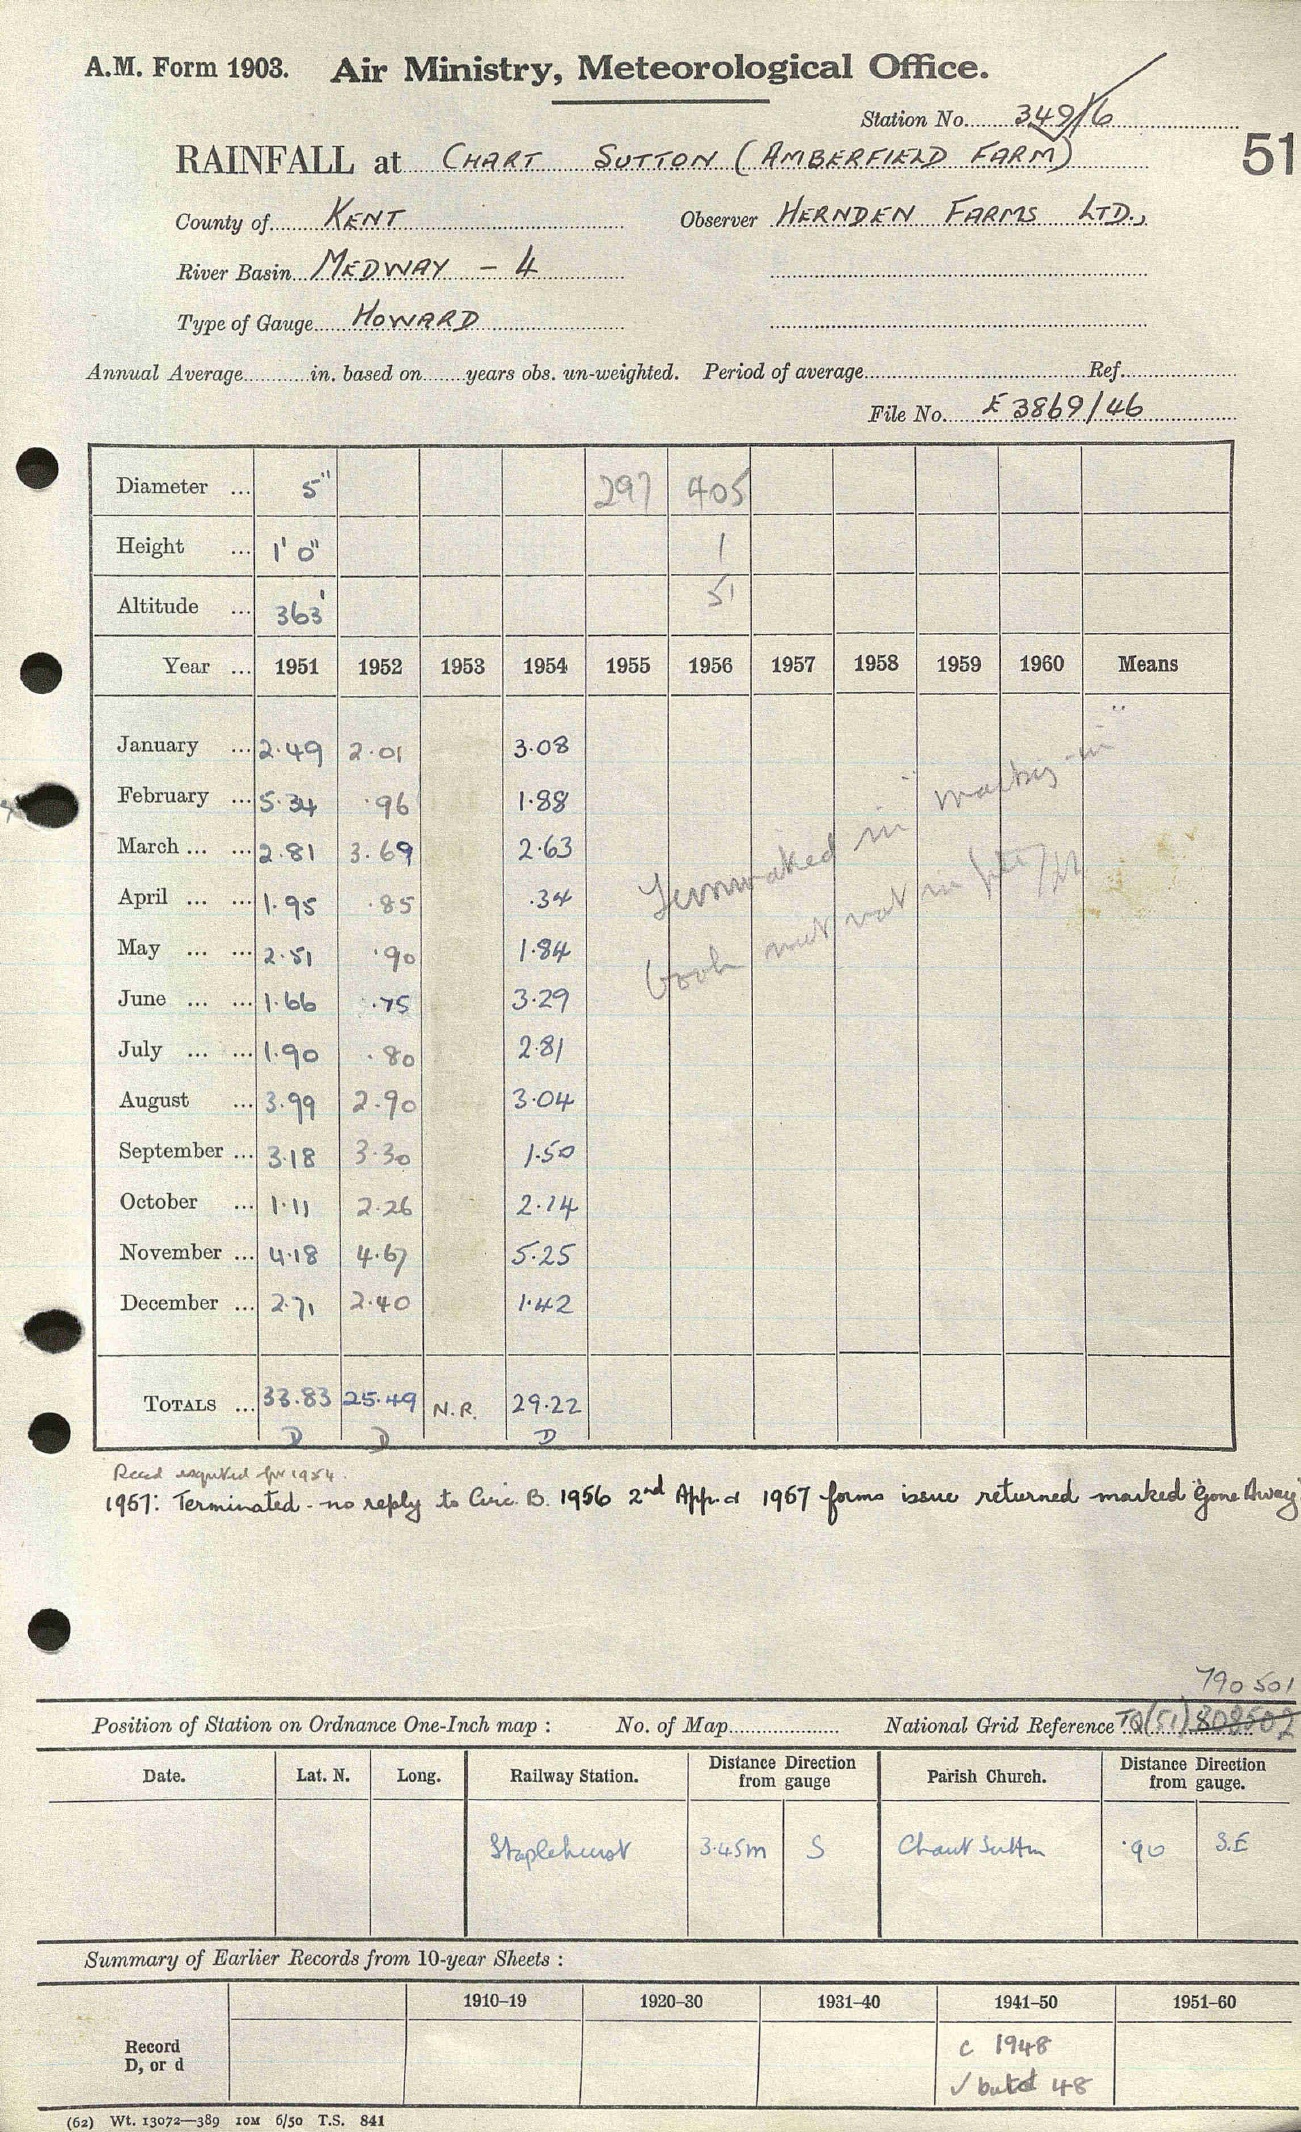 A.M. Form 1903. Air Ministry, Meteorological Office.
Station No. 349/6
51
RAINFALL at CHART SUTTON (AMBERFIELD FARM)
County of KENT Observer HERNDEN FARMS LTD.,
River Basin MEDWAY - 4
Type of Gauge HOWARD
Annual Average in. based on years obs. un-weighted. Period of average Ref.
File No. E 3869/46
Diameter ... 5" 297 405
Height ... 1' 0" 1
Altitude ... 363' 51
Year ... 1951 1952 1953 1954 1955 1956 1957 1958 1959 1960 Means
January ... 2.49 2.01 3.08
February ... 5.34 .96 1.88
March ... ... 2.81 3.69 2.63
April ... ... 1.95 .85 .34
May ... ... 2.51 .90 1.84
June ... ... 1.66 .75 3.29
July ... ... 1.90 .80 2.81
August ... 3.99 2.90 3.04
September ... 3.18 3.30 1.50
October ... 1.11 2.26 2.14
November ... 4.18 4.67 5.25
December ... 2.71 2.40 1.42
in
book not in
TOTALS ... 33.83 25.49 N.R. 29.22
D D D
Read for 1954.
1957: Terminated - no reply to Circ. B. 1956 2nd App. & 1957 forms issue returned marked "Gone Away"
790 501
Position of Station on Ordnance One-Inch map : No. of Map National Grid Reference TQ(51) 808502
Date. Lat. N. Long. Railway Station. Distance Direction from gauge Parish Church. Distance Direction from gauge.
Staplehurst 3.45m S Chart Sutton .90 S.E
Summary of Earlier Records from 10-year Sheets :
1910–19 1920–30 1931–40 1941–50 1951–60
Record
D, or d
c 1948
✓ 48
(62) Wt. 13072—389 10M 6/50 T.S. 841